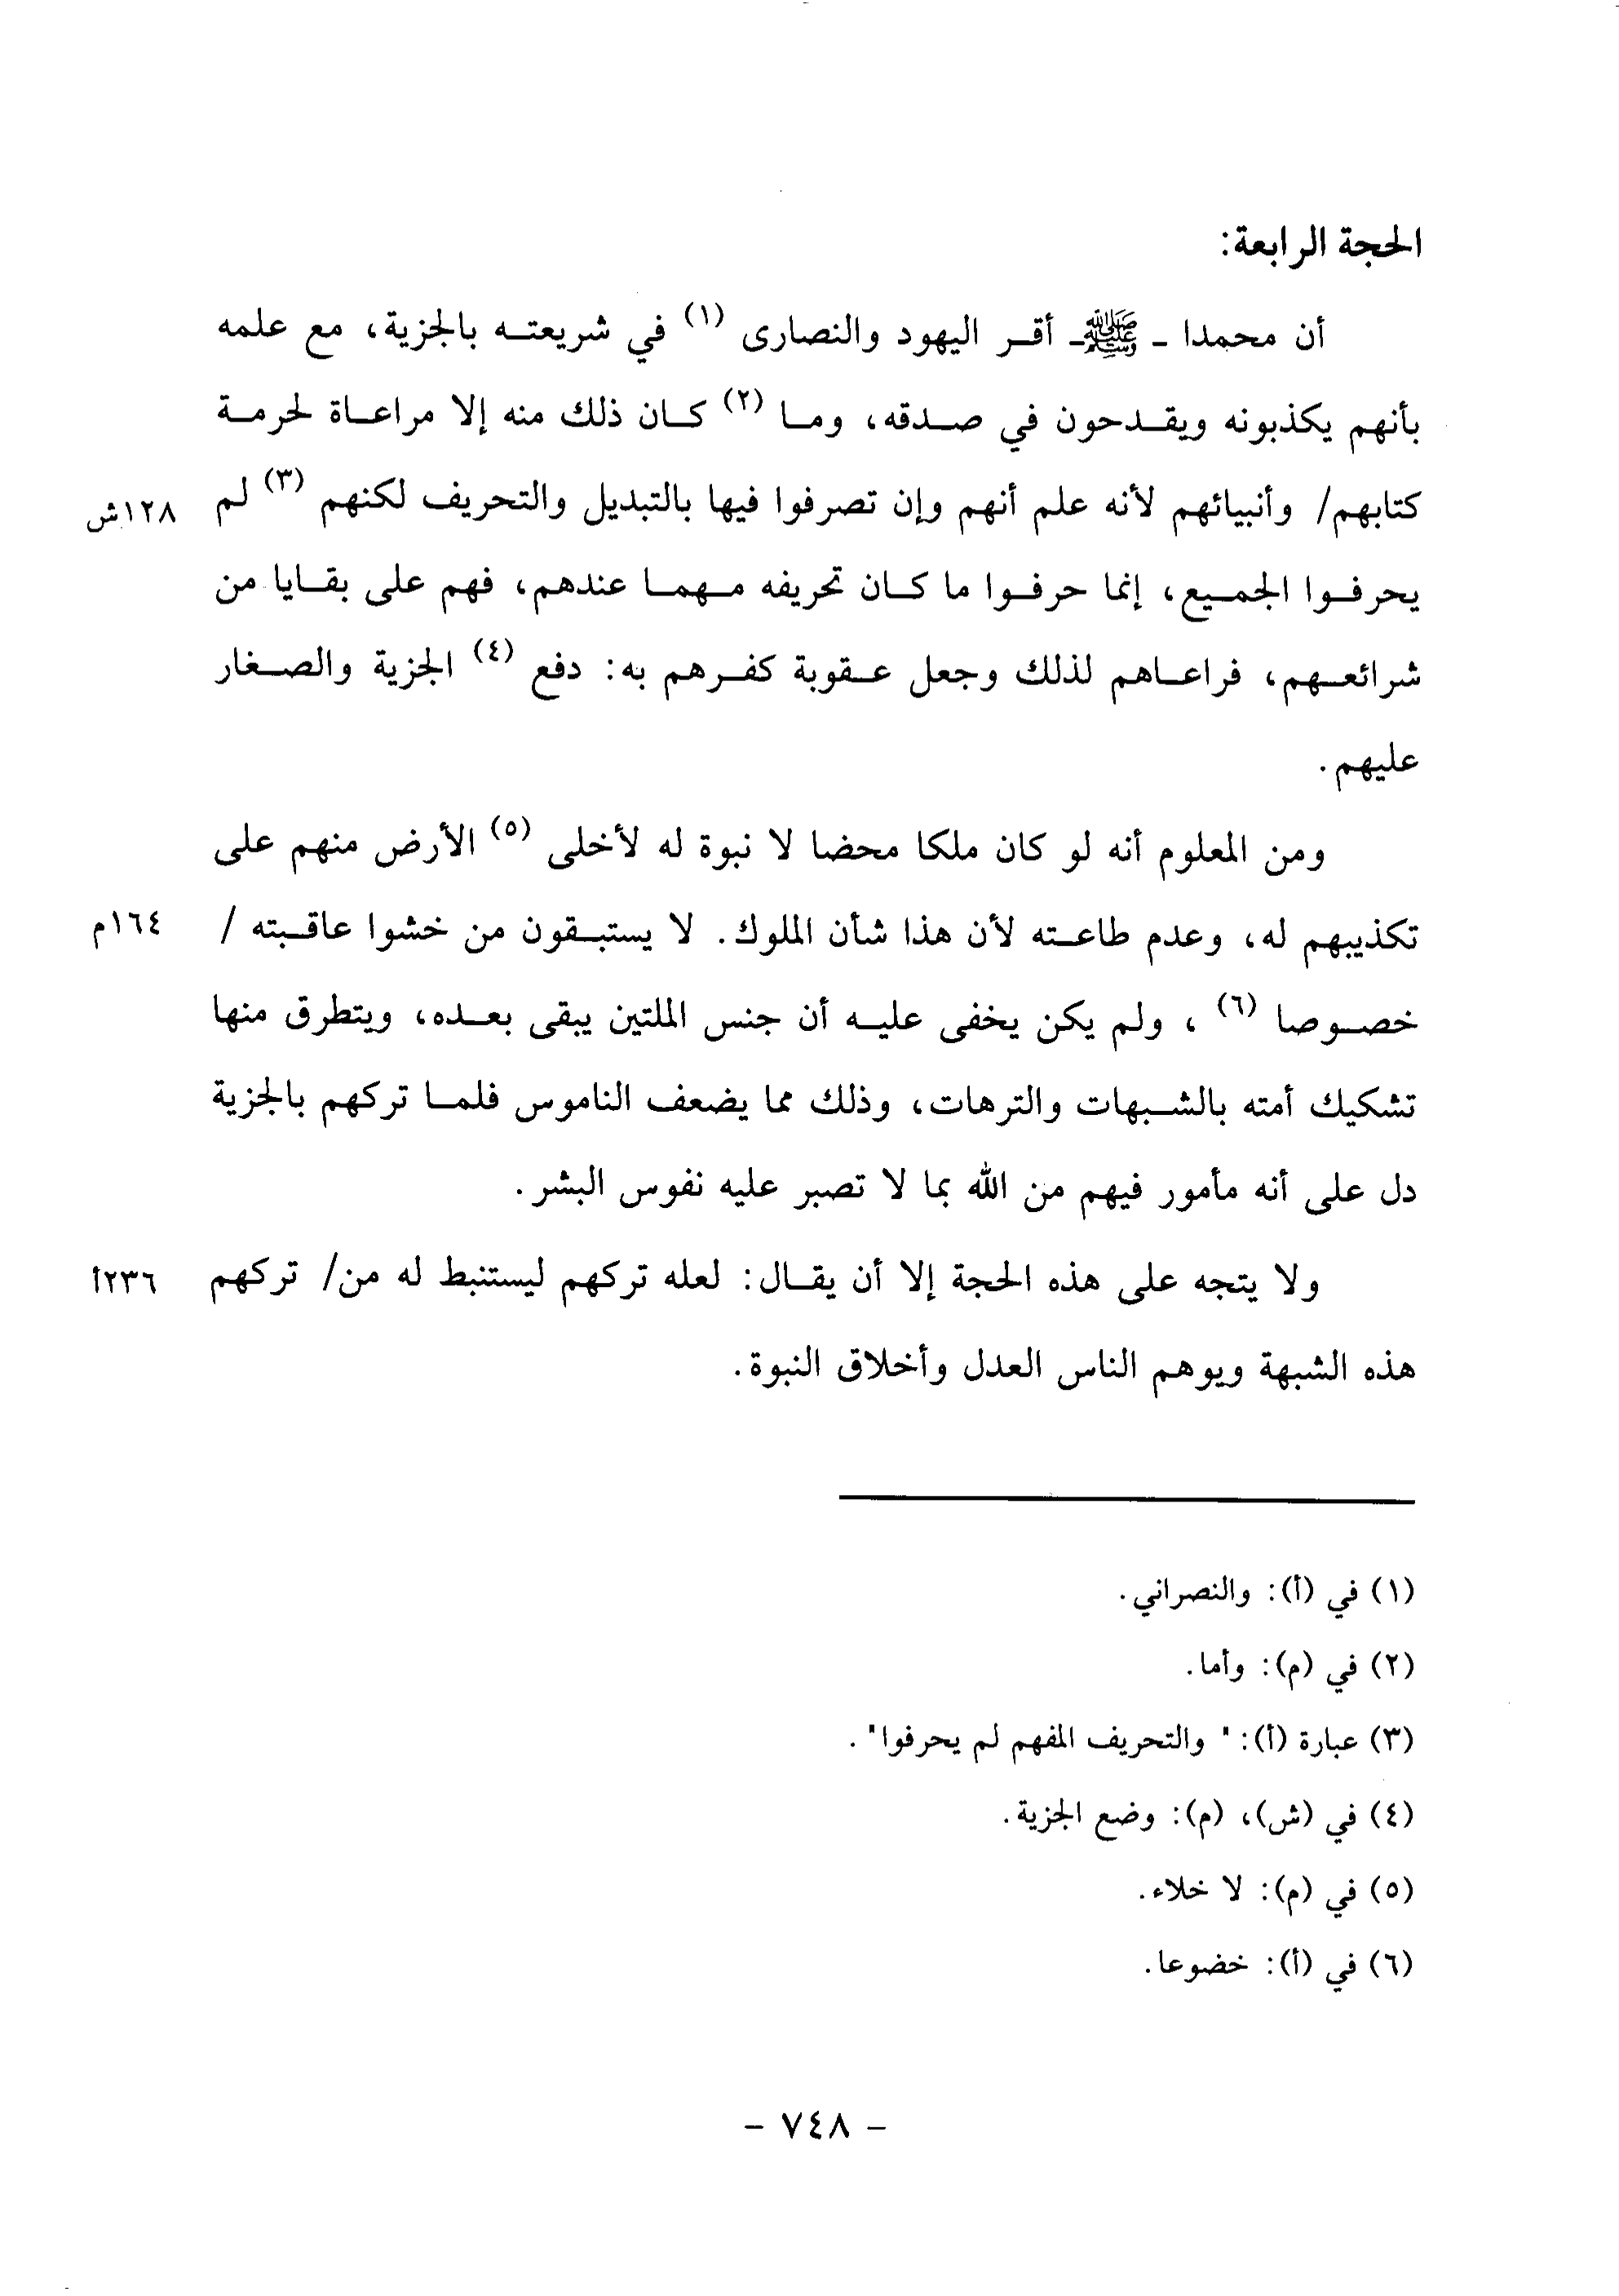 الحجة الرابعة:
أن محمدا - ﷺ - أقر اليهود والنصارى (١) في شريعته بالجزية، مع علمه
بأنهم يكذبونه ويقدحون في صدقه، وما (٢) كان ذلك منه إلا مراعاة لحرمة
كتابهم/ وأنبيائهم لأنه علم أنهم وإن تصرفوا فيها بالتبديل والتحريف لكنهم (٣) لم ١٢٨ش
يحرفوا الجميع، إنما حرفوا ما كان تحريفه مهما عندهم، فهم على بقايا من
شرائعهم، فراعاهم لذلك وجعل عقوبة كفرهم به: دفع (٤) الجزية والصغار
عليهم.
ومن المعلوم أنه لو كان ملكا محضا لا نبوة له لأخلى (٥) الأرض منهم على
تكذيبهم له، وعدم طاعته لأن هذا شأن الملوك. لا يستبقون من خشوا عاقبته / ١٦٤م
خصوصا (٦) ، ولم يكن يخفى عليه أن جنس الملتين يبقى بعده، ويتطرق منها
تشكيك أمته بالشبهات والترهات، وذلك مما يضعف الناموس فلما تركهم بالجزية
دل على أنه مأمور فيهم من الله بما لا تصبر عليه نفوس البشر.
ولا يتجه على هذه الحجة إلا أن يقال: لعله تركهم ليستنبط له من/ تركهم ٢٣٦أ
هذه الشبهة ويوهم الناس العدل وأخلاق النبوة.
(١) في (أ): والنصراني.
(٢) في (م): وأما.
(٣) عبارة (أ): " والتحريف المفهم لم يحرفوا".
(٤) في (ش)، (م): وضع الجزية.
(٥) في (م): لا خلاء.
(٦) في (أ): خضوعا.
- ٧٤٨ -